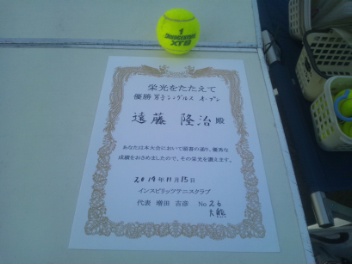 1
DUNLOP
XTB
栄光をたたえて
優勝 男子シングルス オープン
遠藤 隆治 殿
あなたは本大会において頭書の通り、優秀な
成績をおさめましたので、その栄光を讃えます。
2014年11月15日
インスピリッツテニスクラブ
代表 増田 吉彦 No. 26
大熊